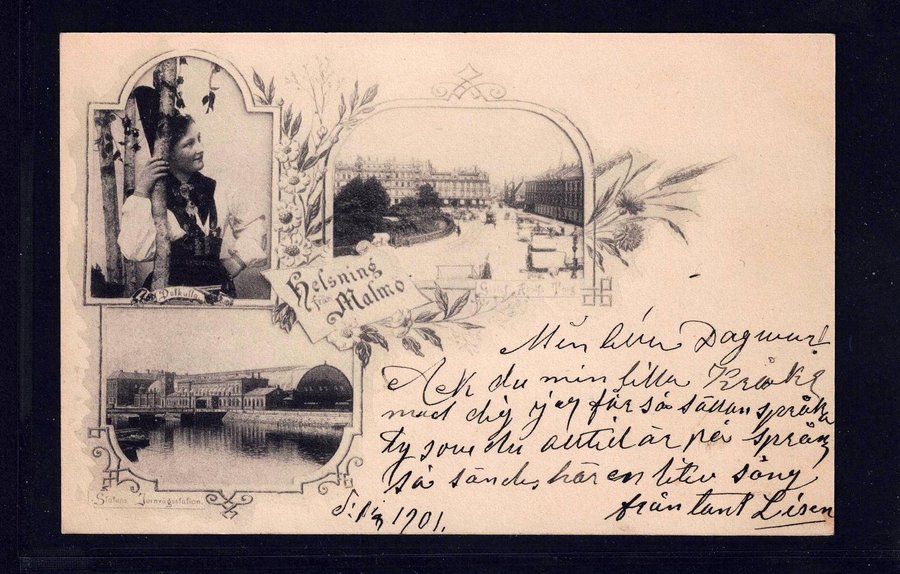 Dalkulla
Helsning
från
Malmö
Gustaf Adolfs Torg
Statens Jernvägsstation.
Min lilla Dagmar!
Ack du min lilla
med dig jag får så sällan språka
ty som du alltid är på språng
så sänds här en liten sång
från tant Lisen
1901.